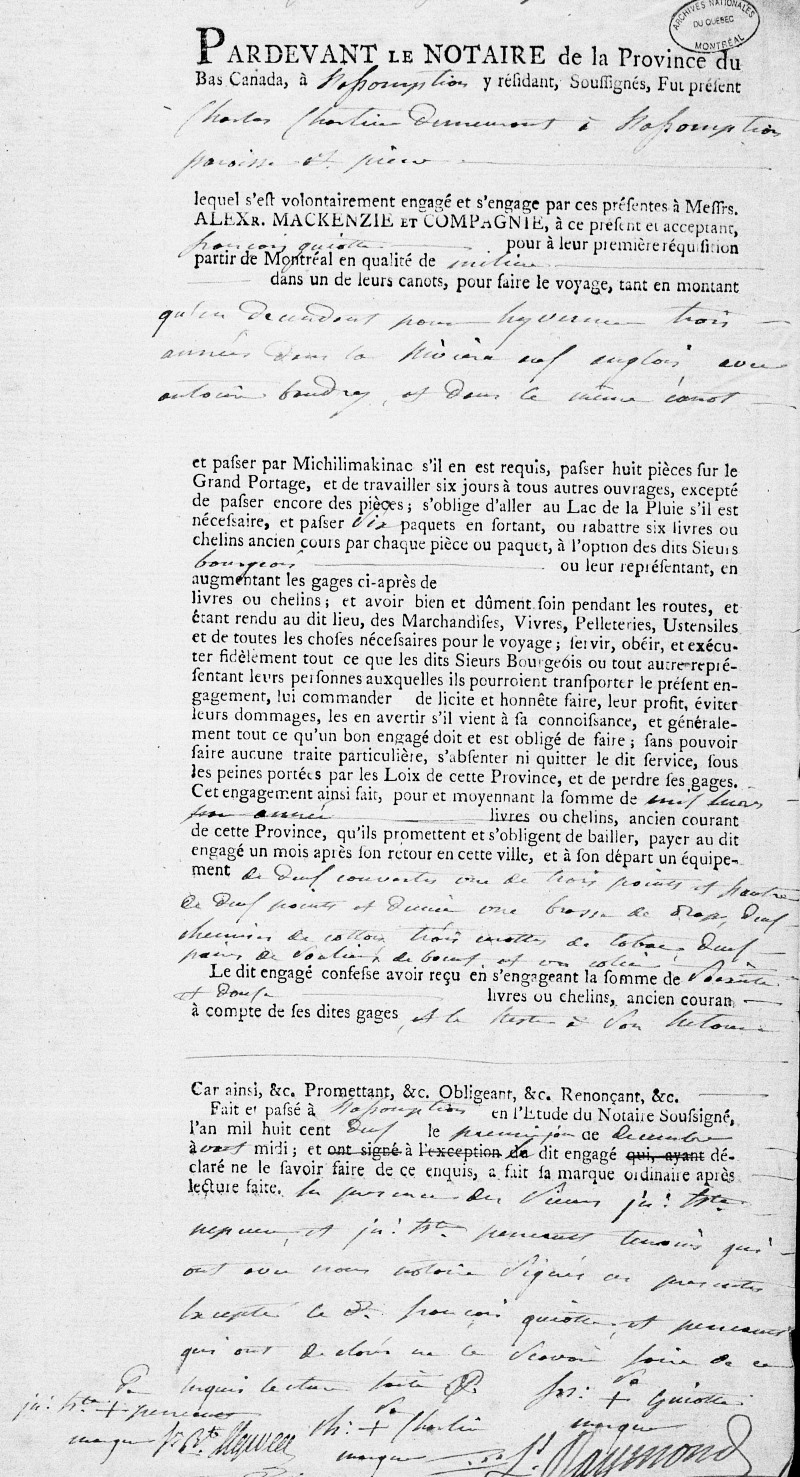 ARCHIVES NATIONALES
DU QUÉBEC
MONTRÉAL
PARDEVANT LE NOTAIRE de la Province du
Bas Canada, à L'assomption y résidant, Soussignés, Fut présent
Charles Chartier Demeurant à L'assomption
paroisse st. pierre
lequel s'est volontairement engagé et s'engage par ces présentes à Messrs.
ALEXR. MACKENZIE ET COMPAGNIE, à ce présent et acceptant,
françois guiotte pour à leur première réquisition
partir de Montréal en qualité de milieu
dans un de leurs canots, pour faire le voyage, tant en montant
qu'en decendent pour hyverner trois
années dans la Rivière anglois avec
antoine baudry, et Dans le même canot
et passer par Michilimakinac s'il en est requis, passer huit pièces sur le
Grand Portage, et de travailler six jours à tous autres ouvrages, excepté
de passer encore des pièces; s'oblige d'aller au Lac de la Pluie s'il est
nécessaire, et passer Six paquets en sortant, ou rabattre six livres ou
chelins ancien cours par chaque pièce ou paquet, à l'option des dits Sieurs
bourgeois ou leur représentant, en
augmentant les gages ci-après de
livres ou chelins; et avoir bien et dûment soin pendant les routes, et
étant rendu au dit lieu, des Marchandises, Vivres, Pelleteries, Ustensiles
et de toutes les choses nécessaires pour le voyage; servir, obéir, et exécu-
ter fidèlement tout ce que les dits Sieurs Bourgeois ou tout autre repré-
sentant leurs personnes auxquelles ils pourroient transporter le présent en-
gagement, lui commander de licite et honnête faire, leur profit, éviter
leurs dommages, les en avertir s'il vient à sa connoissance, et générale-
ment tout ce qu'un bon engagé doit et est obligé de faire; sans pouvoir
faire aucune traite particulière, s'absenter ni quitter le dit service, sous
les peines portées par les Loix de cette Province, et de perdre ses gages.
Cet engagement ainsi fait, pour et moyennant la somme de neuf cents
par année livres ou chelins, ancien courant
de cette Province, qu'ils promettent et s'obligent de bailler, payer au dit
engagé un mois après son retour en cette ville, et à son départ un équipe-
ment de Deux couvertes une de trois points et l'autre
de Deux points et Demie une brasse de Drap, Deux
chemises de cotton trois carottes de tabac Deux
paires de Souliers de boeuf et un colier
Le dit engagé confesse avoir reçu en s'engageant la somme de Soixante
et Douse livres ou chelins, ancien couran
à compte de ses dites gages et le Reste à Son Retour
Car ainsi, &c. Promettant, &c. Obligeant, &c. Renonçant, &c.
Fait et passé à L'assomption en l'Etude du Notaire Soussigné,
l'an mil huit cent Deux le premier jour de Decembre
avant midi; et ont signé à l'exception le dit engagé qui, ayant dé-
claré ne le savoir faire de ce enquis, a fait sa marque ordinaire après
lecture faite. En presence des Sieurs jn. Bte
nepveu, et jn. Bte perreault temoins qui
ont avec nous notaire Signés ces presentes
Excepté le dt. françois guiotte, et perreault
qui ont declaré ne le Scavoir faire de ce
enquis lecture faite
jn. Bte + perreault
sa
marque
Jn Bte Nepveu
Ch. + Chartier
sa
marque
frs. + Guiotte
sa
marque
Raymond